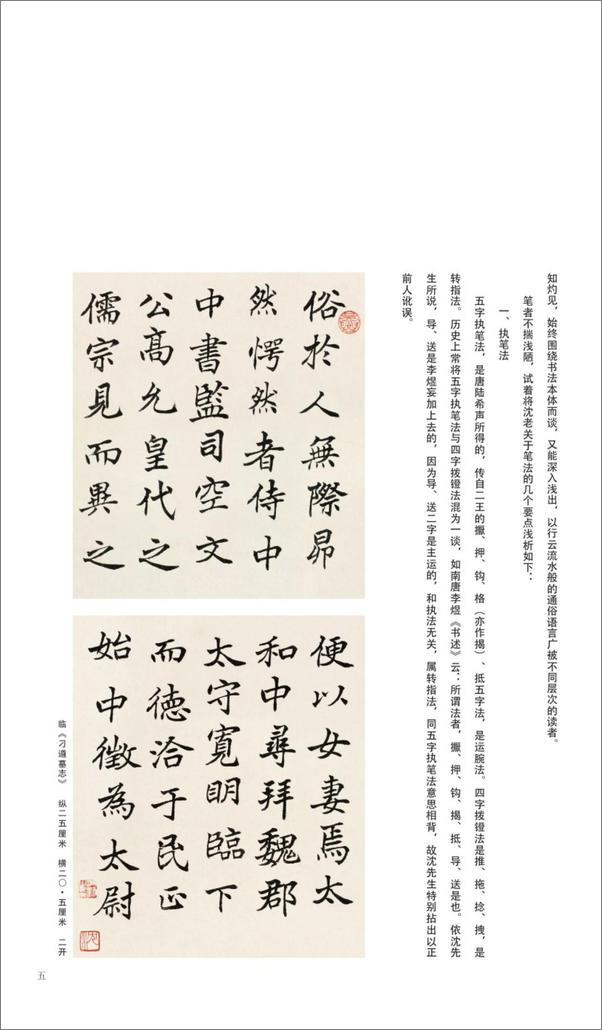 知灼见，始终围绕书法本体而谈，又能深入浅出，以行云流水般的通俗语言广被不同层次的读者。
笔者不揣浅陋，试着将沈老关于笔法的几个要点浅析如下：
一、执笔法
五字执笔法，是唐陆希声所得的，传自二王的擫、押、钩、格（亦作揭）、抵五字法，是运腕法。四字拨镫法是推、拖、捻、拽，是
转指法。历史上常将五字执笔法与四字拨镫法混为一谈，如南唐李煜《书述》云：所谓法者，擫、押、钩、揭、抵、导、送是也。依沈先
生所说，导、送是李煜妄加上去的，因为导、送二字是主运的，和执法无关，属转指法，同五字执笔法意思相背，故沈先生特别拈出以正
前人讹误。
俗於人無際昻
然愕然者侍中
中書監司空文
公高允皇代之
儒宗見而異之
便以女妻焉太
和中尋拜魏郡
太守寬明臨下
而德洽于民正
始中徵為太尉
临《刁遵墓志》 纵二五厘米 横二〇·五厘米 二开
五